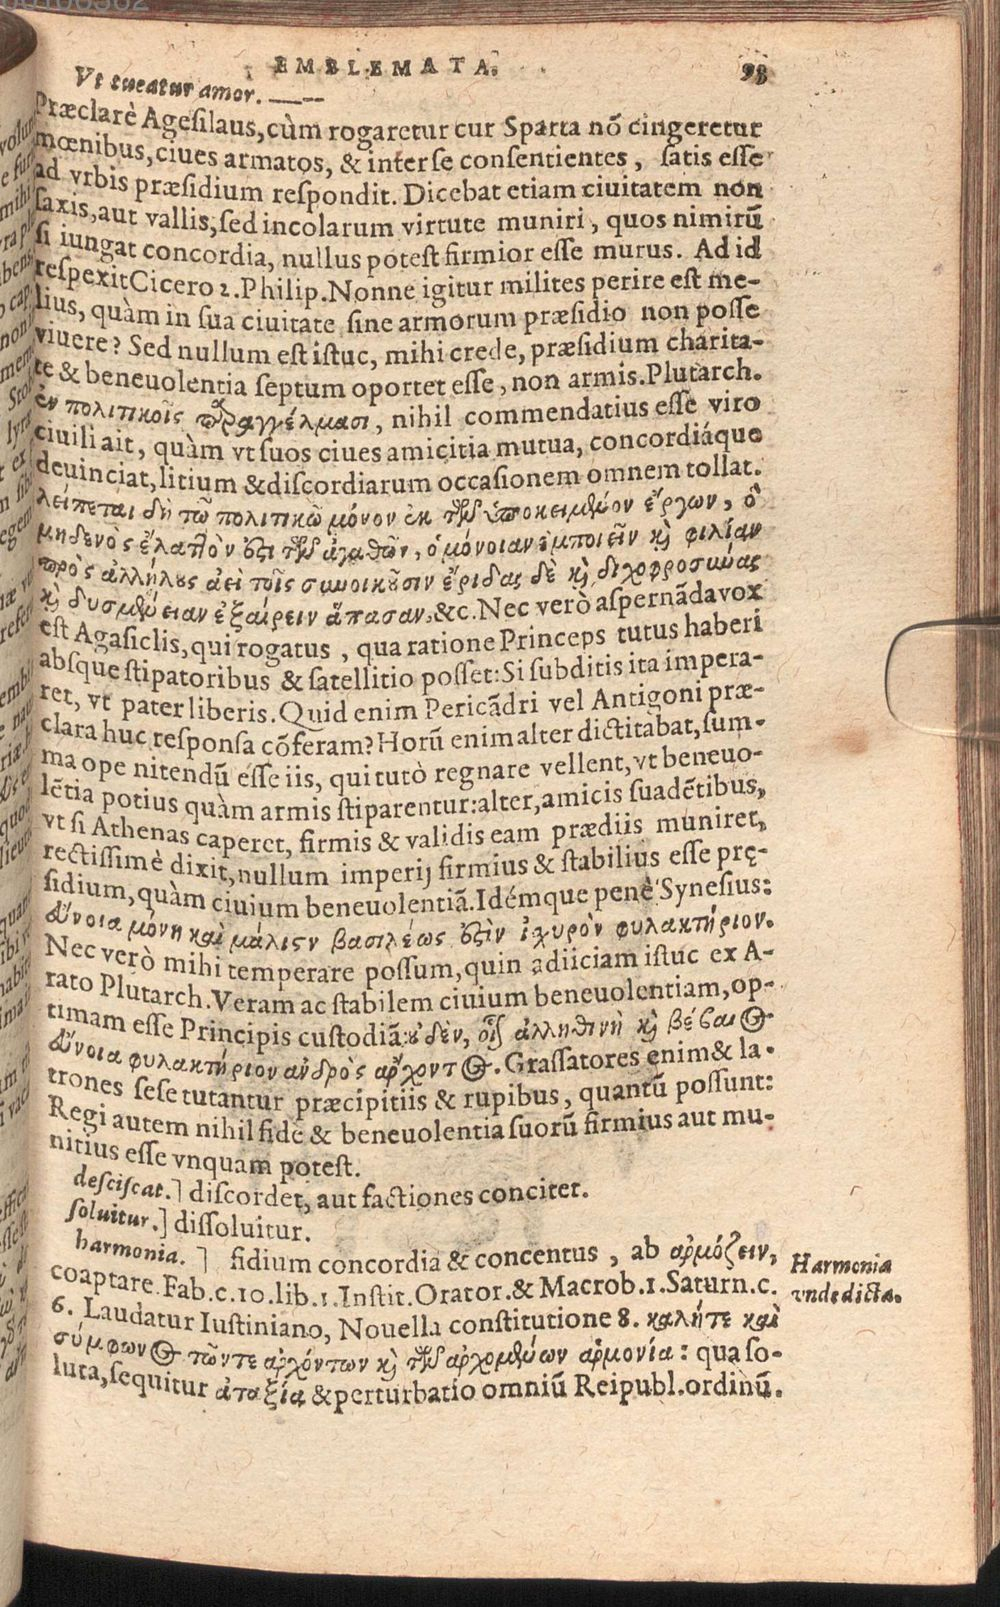 EMBLEMATA. 93
Vt tueatur amor. ——
Præclarè Agesilaus, cùm rogaretur cur Sparta nõ cingeretur
mœnibus, ciues armatos, & inter se consentientes, satis esse
ad vrbis præsidium respondit. Dicebat etiam ciuitatem non
saxis, aut vallis, sed incolarum virtute muniri, quos nimirũ
si iungat concordia, nullus potest firmior esse murus. Ad id
respexit Cicero 2. Philip. Nonne igitur milites perire est me-
lius, quàm in sua ciuitate sine armorum præsidio non posse
viuere? Sed nullum est istuc, mihi crede, præsidium charita-
te & beneuolentia septum oportet esse, non armis. Plutarch.
ἐν πολιτικοῖς παραγγέλμασι, nihil commendatius esse viro
ciuili ait, quàm vt suos ciues amicitia mutua, concordiáque
deuinciat, litium & discordiarum occasionem omnem tollat.
λείπεται δὴ τῷ πολιτικῷ μόνον ἐκ τῶν ὑποκειμένων ἔργων, ὃ
μηδενὸς ἔλαττόν ἐστι τῶν ἀγαθῶν, ὁμόνοιαν ἐμποιεῖν καὶ φιλίαν
πρὸς ἀλλήλους ἀεὶ τοῖς συνοικοῦσιν ἔριδας δὲ καὶ διχοφροσύνας
καὶ δυσμένειαν ἐξαίρειν ἅπασαν, &c. Nec verò aspernãda vox
est Agasiclis, qui rogatus, qua ratione Princeps tutus haberi
absque stipatoribus & satellitio posset: Si subditis ita impera-
ret, vt pater liberis. Quid enim Pericãdri vel Antigoni præ-
clara huc responsa cõferam? Horũ enim alter dictitabat, sum-
ma ope nitendũ esse iis, qui tutò regnare vellent, vt beneuo-
lẽtia potius quàm armis stiparentur: alter, amicis suadẽtibus,
vt si Athenas caperet, firmis & validis eam prædiis muniret,
rectissimè dixit, nullum imperij firmius & stabilius esse prę-
sidium, quàm ciuium beneuolentiã. Idémque penè Synesius:
εὔνοια μόνη καὶ μάλιστα βασιλέως ἐστὶν ἰχυρὸν φυλακτήριον.
Nec verò mihi temperare possum, quin adiiciam istuc ex A-
rato Plutarch. Veram ac stabilem ciuium beneuolentiam, op-
timam esse Principis custodiã: οὐδὲν, οἷς ἀλληθινὴ καὶ βέβαιος
εὔνοια φυλακτήριον ἀνδρὸς ἄρχοντος. Grassatores enim & la-
trones sese tutantur præcipitiis & rupibus, quantũ possunt:
Regi autem nihil fide & beneuolentia suorũ firmius aut mu-
nitius esse vnquam potest.
desciscat.] discordet, aut factiones concitet.
soluitur.] dissoluitur.
harmonia.] fidium concordia & concentus, ab ἁρμόζειν,
Harmonia
coaptare. Fab. c. 10. lib. 1. Instit. Orator. & Macrob. 1. Saturn. c.
vnde dicta.
6. Laudatur Iustiniano, Nouella constitutione 8. καλήτε καὶ
σύμφωνος τῶντε ἀρχόντων καὶ τῶν ἀρχομένων ἁρμονία: qua so-
luta, sequitur ἀταξία & perturbatio omniũ Reipubl. ordinũ.